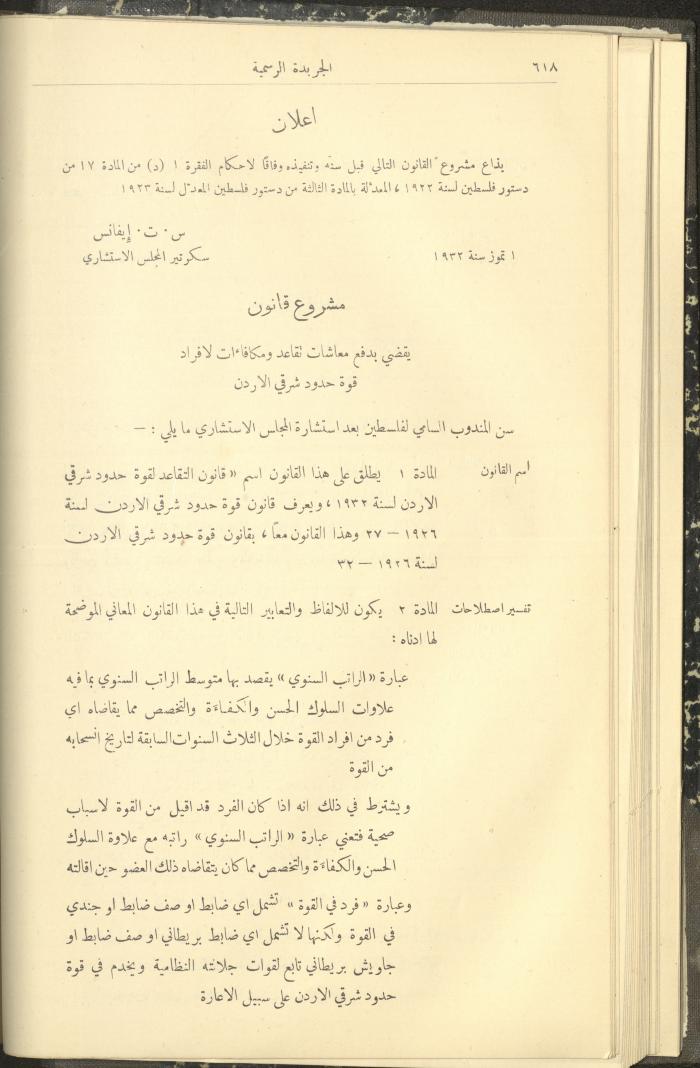 ٦١٨
الجريدة الرسمية
اعلان
يذاع مشروع القانون التالي قبل سنّه وتنفيذه وفاقًا لاحكام الفقرة ١ (د) من المادة ١٧ من
دستور فلسطين لسنة ١٩٢٢، المعدّلة بالمادة الثالثة من دستور فلسطين المعدّل لسنة ١٩٢٣
س. ت. إيفانس
١ تموز سنة ١٩٣٢
سكرتير المجلس الاستشاري
مشروع قانون
يقضي بدفع معاشات تقاعد ومكافاءات لافراد
قوة حدود شرقي الاردن
سن المندوب السامي لفلسطين بعد استشارة المجلس الاستشاري ما يلي : —
اسم القانون
المادة ١ يطلق على هذا القانون اسم «قانون التقاعد لقوة حدود شرقي
الاردن لسنة ١٩٣٢، ويعرف قانون قوة حدود شرقي الاردن لسنة
١٩٢٦ — ٢٧ وهذا القانون معًا، بقانون قوة حدود شرقي الاردن
لسنة ١٩٢٦ — ٣٢
تفسير اصطلاحات
المادة ٢ يكون للالفاظ والتعابير التالية في هذا القانون المعاني الموضحة
لها ادناه :
عبارة «الراتب السنوي» يقصد بها متوسط الراتب السنوي بما فيه
علاوات السلوك الحسن والكفاءة والتخصص مما يقاضاه اي
فرد من افراد القوة خلال الثلاث السنوات السابقة لتاريخ انسحابه
من القوة
ويشترط في ذلك انه اذا كان الفرد قد اقيل من القوة لاسباب
صحية فتعني عبارة «الراتب السنوي» راتبه مع علاوة السلوك
الحسن والكفاءة والتخصص مما كان يتقاضاه ذلك العضو حين اقالته
وعبارة «فرد في القوة» تشمل اي ضابط او صف ضابط او جندي
في القوة ولكنها لا تشمل اي ضابط بريطاني او صف ضابط او
جاويش بريطاني تابع لقوات جلالته النظامية ويخدم في قوة
حدود شرقي الاردن على سبيل الاعارة